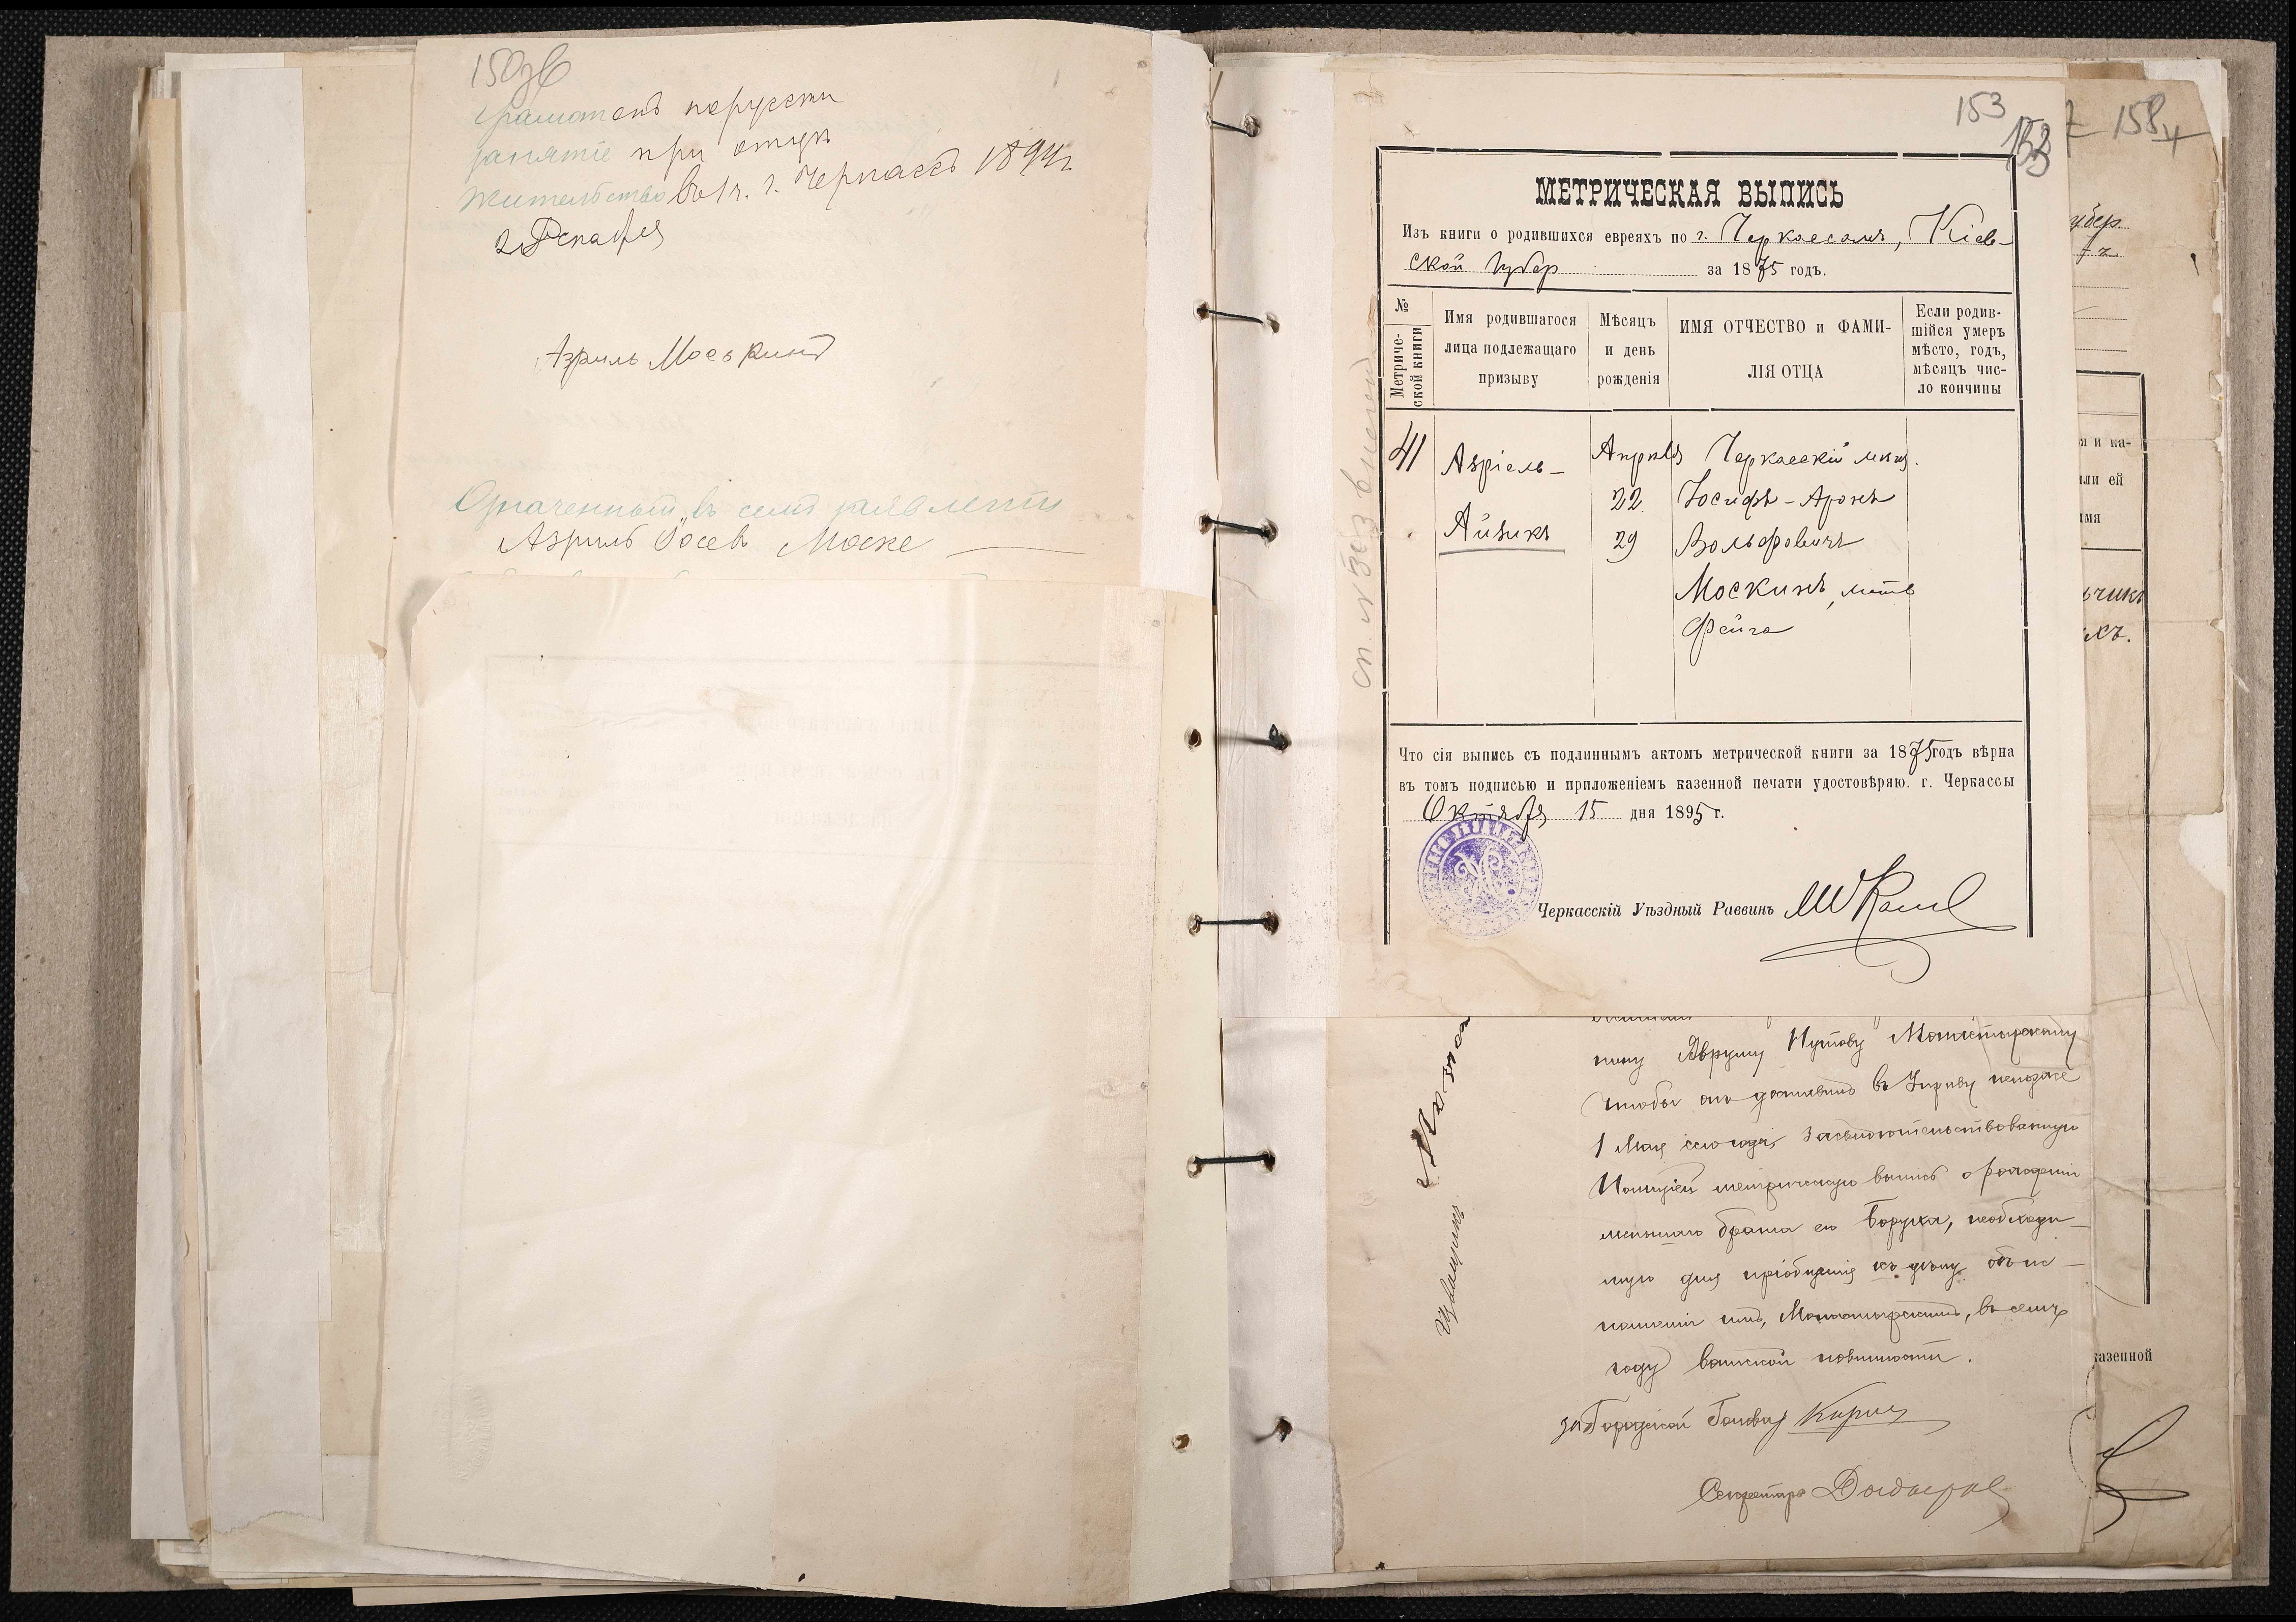 150об
грамотенъ порусски
занятіе при отцѣ
жительство въ 1 ч. г. Черкассъ 1894 г.
2 Декабря
Азриль Моськинъ
Означенный въ семъ заявленіи
Азриль Іосев Моске
153
153
158
МЕТРИЧЕСКАЯ ВЫПИСЬ
Изъ книги о родившихся евреяхъ по г. Черкассамъ, Кіев-
ской губер за 1875 годъ.
№ Метриче-ской книги
Имя родившагося лица подлежащаго призыву
Мѣсяцъ и день рожденія
ИМЯ ОТЧЕСТВО и ФАМИ-ЛІЯ ОТЦА
Если родив-шійся умеръ мѣсто, годъ, мѣсяцъ чис-ло кончины
41 Азріель- Апрѣля Черкасскій мѣщ.
22 Іосифъ-Аронъ
Айзикъ 29 Вольфовичъ
Москинъ, мать
Фейга
Что сія выпись съ подлиннымъ актомъ метрической книги за 1875 годъ вѣрна
въ томъ подписью и приложеніемъ казенной печати удостовѣряю. г. Черкассы
Октября 15 дня 1895 г.
Черкасскій Уѣздный Раввинъ
Аврумъ Нутову Монастырскому
чтобы онъ доставилъ въ Управу непозже
1 Мая сего года, засвидѣтельствованную
Полиціей метрическую выпись о рожденіи
меньшаго брата его Боруха, необходи-
мую для пріобщенія къ дѣлу объ ис-
полненіи имъ, Монастырскимъ, въ семъ
году воинской повинности.
за Городской Голова
Секретарь
губер.
я и ка-
или ей
имя
казенной